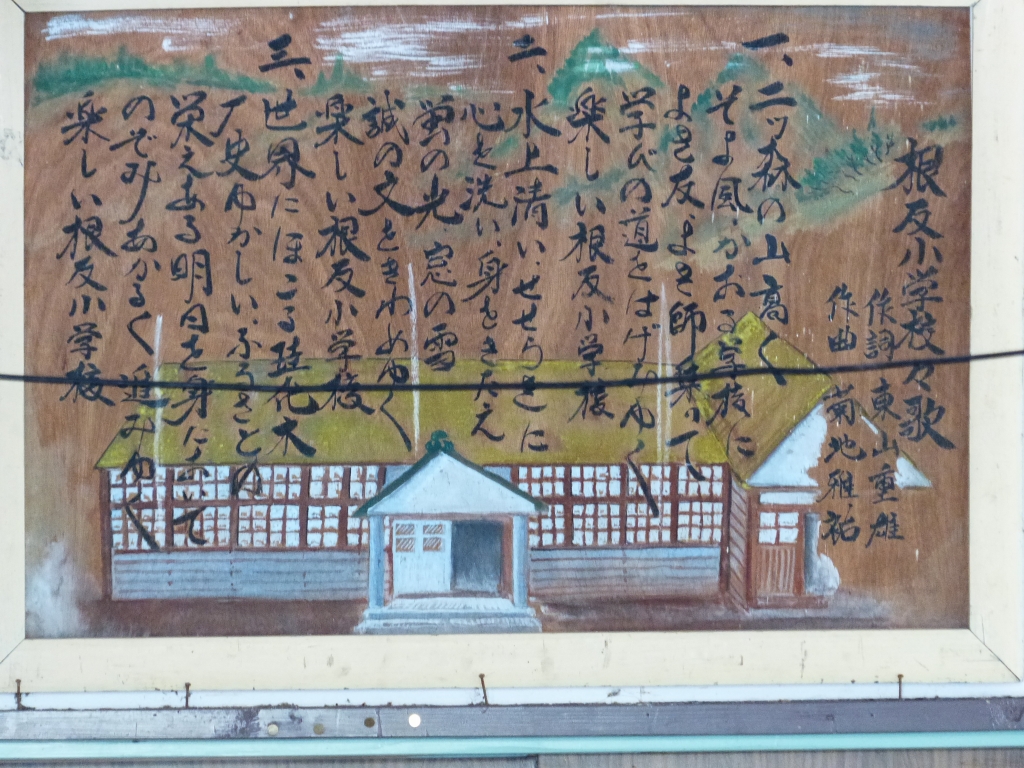 根反小学校々歌
作詞 東山重雄
作曲 菊地雅祐
一、二ッ森の山高く
そよ風かおる学校に
よき友よき師集って
学びの道をはげみゆく
楽しい根反小学校
二、水上清いせせらぎに
心を洗い身をきたえ
蛍の光窓の雪
誠の文をきわめゆく
楽しい根反小学校
三、世界にほこる珪化木
歴史ゆかしいふるさとの
栄えある明日を身において
のぞみあかるく進みゆく
楽しい根反小学校